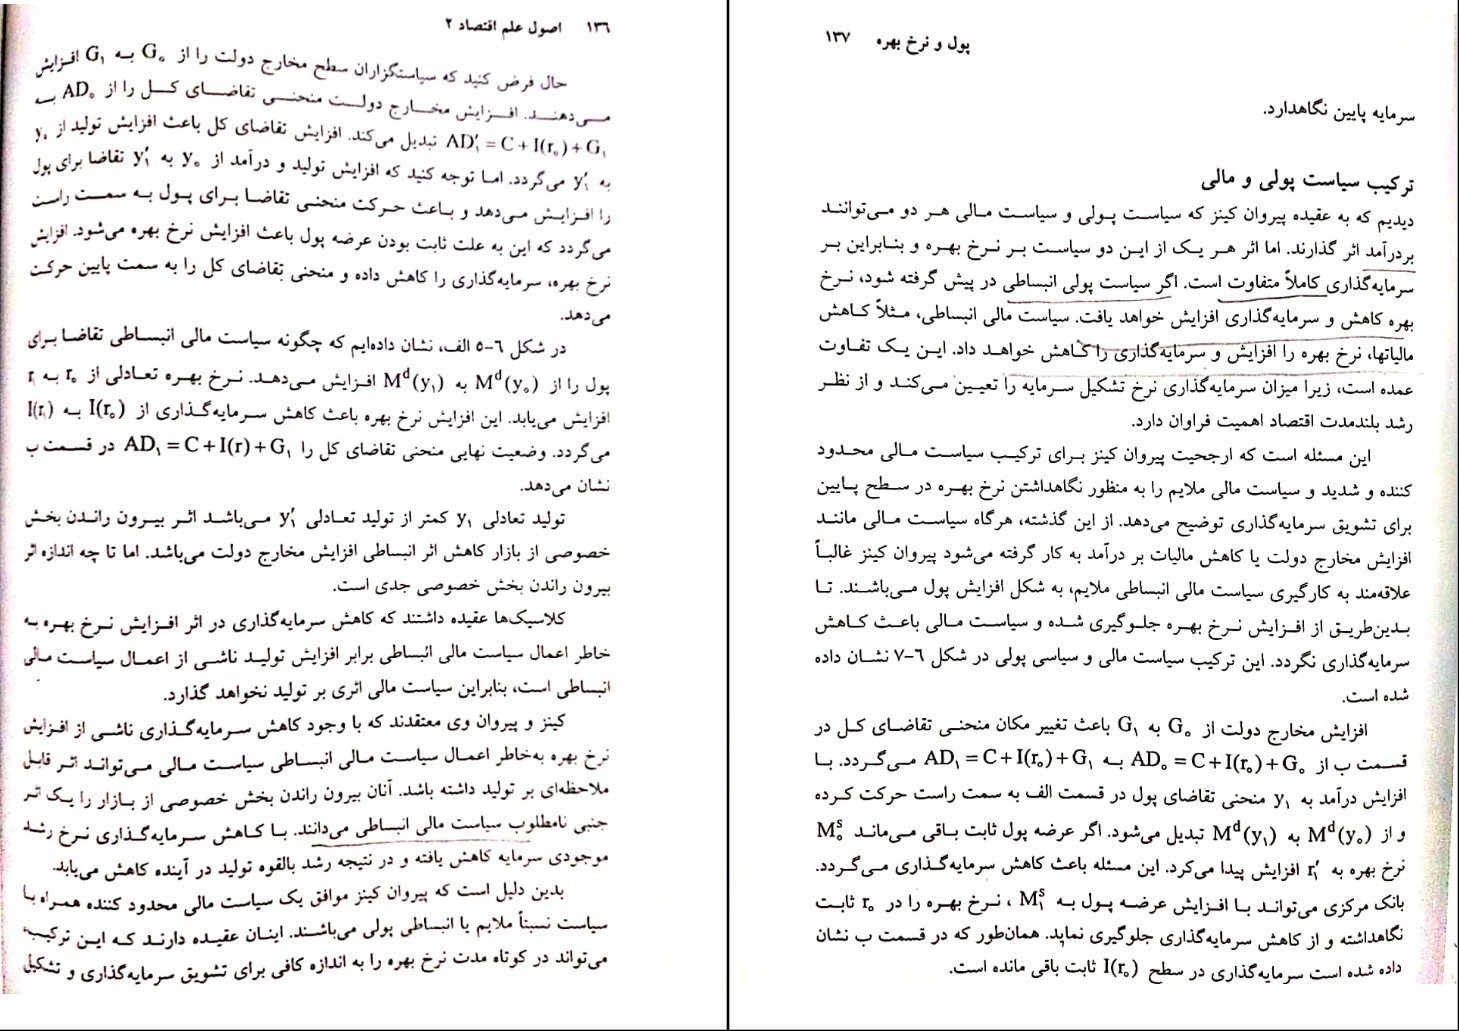 ۱۳۶ اصول علم اقتصاد ۲
حال فرض کنید که سیاستگزاران سطح مخارج دولت را از G۰ به G۱ افزایش
می‌دهند. افزایش مخارج دولت منحنی تقاضای کل را از AD۰ به
AD′۱ = C + I(r۰) + G۱ تبدیل می‌کند. افزایش تقاضای کل باعث افزایش تولید از y۰
به y′۱ می‌گردد. اما توجه کنید که افزایش تولید و درآمد از y۰ به y′۱ تقاضا برای پول
را افزایش می‌دهد و باعث حرکت منحنی تقاضا برای پول به سمت راست
می‌گردد که این به علت ثابت بودن عرضه پول باعث افزایش نرخ بهره می‌شود. افزایش
نرخ بهره، سرمایه‌گذاری را کاهش داده و منحنی تقاضای کل را به سمت پایین حرکت
می‌دهد.
در شکل ۶-۵ الف، نشان داده‌ایم که چگونه سیاست مالی انبساطی تقاضا برای
پول را از Mᵈ(y۰) به Mᵈ(y۱) افزایش می‌دهد. نرخ بهره تعادلی از r۰ به r۱
افزایش می‌یابد. این افزایش نرخ بهره باعث کاهش سرمایه‌گذاری از I(r۰) به I(r۱)
می‌گردد. وضعیت نهایی منحنی تقاضای کل را AD۱ = C + I(r) + G۱ در قسمت ب
نشان می‌دهد.
تولید تعادلی y۱ کمتر از تولید تعادلی y′۱ می‌باشد اثر بیرون راندن بخش
خصوصی از بازار کاهش اثر انبساطی افزایش مخارج دولت می‌باشد. اما تا چه اندازه اثر
بیرون راندن بخش خصوصی جدی است.
کلاسیک‌ها عقیده داشتند که کاهش سرمایه‌گذاری در اثر افزایش نرخ بهره به
خاطر اعمال سیاست مالی انبساطی برابر افزایش تولید ناشی از اعمال سیاست مالی
انبساطی است، بنابراین سیاست مالی اثری بر تولید نخواهد گذارد.
کینز و پیروان وی معتقدند که با وجود کاهش سرمایه‌گذاری ناشی از افزایش
نرخ بهره به‌خاطر اعمال سیاست مالی انبساطی سیاست مالی می‌تواند اثر قابل
ملاحظه‌ای بر تولید داشته باشد. آنان بیرون راندن بخش خصوصی از بازار را یک اثر
جنبی نامطلوب سیاست مالی انبساطی می‌دانند. با کاهش سرمایه‌گذاری نرخ رشد
موجودی سرمایه کاهش یافته و در نتیجه رشد بالقوه تولید در آینده کاهش می‌یابد.
بدین دلیل است که پیروان کینز موافق یک سیاست مالی محدود کننده همراه با
سیاست نسبتاً ملایم یا انبساطی پولی می‌باشند. اینان عقیده دارند که این ترکیب
می‌تواند در کوتاه مدت نرخ بهره را به اندازه کافی برای تشویق سرمایه‌گذاری و تشکیل
پول و نرخ بهره ۱۳۷
سرمایه پایین نگاهدارد.
ترکیب سیاست پولی و مالی
دیدیم که به عقیده پیروان کینز که سیاست پولی و سیاست مالی هر دو می‌توانند
بردرآمد اثر گذارند. اما اثر هر یک از این دو سیاست بر نرخ بهره و بنابراین بر
سرمایه‌گذاری کاملاً متفاوت است. اگر سیاست پولی انبساطی در پیش گرفته شود، نرخ
بهره کاهش و سرمایه‌گذاری افزایش خواهد یافت. سیاست مالی انبساطی، مثلاً کاهش
مالیاتها، نرخ بهره را افزایش و سرمایه‌گذاری را کاهش خواهد داد. این یک تفاوت
عمده است، زیرا میزان سرمایه‌گذاری نرخ تشکیل سرمایه را تعیین می‌کند و از نظر
رشد بلندمدت اقتصاد اهمیت فراوان دارد.
این مسئله است که ارجحیت پیروان کینز برای ترکیب سیاست مالی محدود
کننده و شدید و سیاست مالی ملایم را به منظور نگاهداشتن نرخ بهره در سطح پایین
برای تشویق سرمایه‌گذاری توضیح می‌دهد. از این گذشته، هرگاه سیاست مالی مانند
افزایش مخارج دولت یا کاهش مالیات بر درآمد به کار گرفته می‌شود پیروان کینز غالباً
علاقه‌مند به کارگیری سیاست مالی انبساطی ملایم، به شکل افزایش پول می‌باشند. تا
بدین‌طریق از افزایش نرخ بهره جلوگیری شده و سیاست مالی باعث کاهش
سرمایه‌گذاری نگردد. این ترکیب سیاست مالی و سیاسی پولی در شکل ۶-۷ نشان داده
شده است.
افزایش مخارج دولت از G۰ به G۱ باعث تغییر مکان منحنی تقاضای کل در
قسمت ب از AD۰ = C + I(r۰) + G۰ به AD۱ = C + I(r۰) + G۱ می‌گردد. با
افزایش درآمد به y۱ منحنی تقاضای پول در قسمت الف به سمت راست حرکت کرده
و از Mᵈ(y۰) به Mᵈ(y۱) تبدیل می‌شود. اگر عرضه پول ثابت باقی می‌ماند Mˢ۰
نرخ بهره به r′۱ افزایش پیدا می‌کرد. این مسئله باعث کاهش سرمایه‌گذاری می‌گردد.
بانک مرکزی می‌تواند با افزایش عرضه پول به Mˢ۱ ، نرخ بهره را در r۰ ثابت
نگاهداشته و از کاهش سرمایه‌گذاری جلوگیری نماید. همان‌طور که در قسمت ب نشان
داده شده است سرمایه‌گذاری در سطح I(r۰) ثابت باقی مانده است.